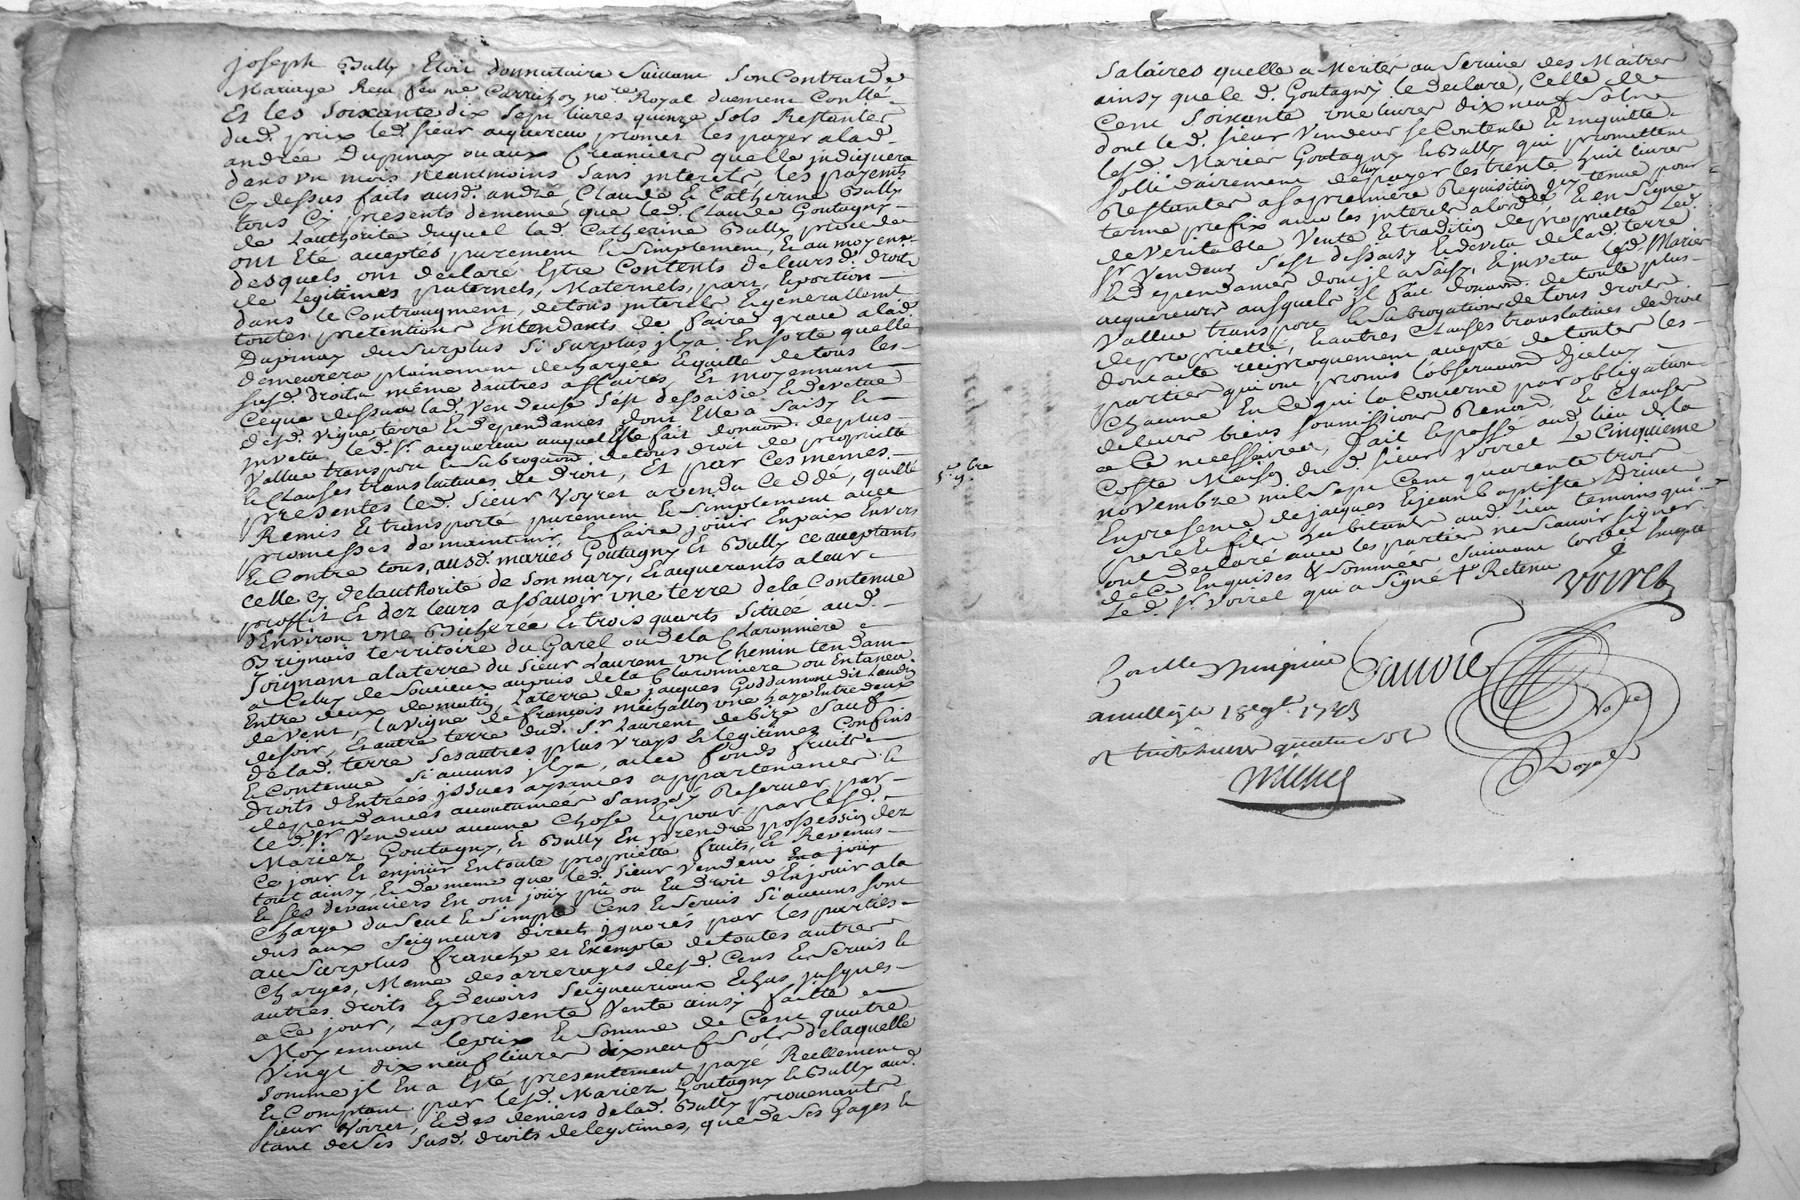 joseph Bully Etoit donnataire Suivant Son Contrat de
Mariage Recu par me Carrichon nore Royal duement Conllé
Et les Soixante dix Sept livres quinze Sols Restantes
dud. prix led. sieur acquereur promet les payer alad.
andrée Dupinay ou aux Creanciers quelle jndiquera
dans vn mois neantmoins Sans jnterets les payemts
Cy dessus faits ausd. andré, Claude & Catherine Bully
tous Cy presents de meme que led. Claude Goutagny
de Lauthorité duquel lad. Catherine Bully procede
ont Eté acceptés purement & Simplement, Et au moyen
desquels ont declaré Estre Contents de leursd. droits
de Legitimes paternels, Maternels, part, & portion
dans le Contenu, de tous jnterets & generallement
toutes pretentions Entendants de faire grace alad.
Dupinay du Surplus Si Surplus jl y a En sorte quelle
demeurera plainement dechargée & quitte de tous les
susd. droits même dautres affaires, Et moyennant
Ceque dessus lad. Vendeuse Sest dessaisie & devetue
desd. Vigne terre & dependances dont Elle a Saisy &
jnvetu led. Sr. acquereur auquel Elle fait donaon. de plus
Vallue transport & Subrogaon. de tous droit de proprietté
& Clauses translatives de Droit, Et par ces memes
presentes led. Sieur Voyret a vendu Cedé, quitté
Remis Et transporté purement & Simplement avec
promesses de maintenir & faire jouir En paix Envers
& Contre tous, ausd. mariés Goutagny Et Bully ce acceptants
celle cy delauthorité de Son mary, & acquerants a leur
proffit Et dez leurs assavoir vne terre de la Contenue
dEnviron vne Bicherée & trois quarts Située aud.
Brignais territoire du Garel ou de la Claronniere
Joignant alaterre du Sieur Laurent vn Chemin tendant
a Celuy de Soucieux aupuis de la Claronniere ou Entaneu
Entre deux de matin, Laterre de jacques Goddamont dit
de Vent, Lavigne de francois michallon vne haye Entre deux
de soir, Et autre terre dud. Sr. Laurent de bize Sauf
de lad. terre Ses autres plus Vrays & legitimes Confins
& Contenue Si aucuns jl y a, avec fonds fruits
droits dEntrées jssues aysances appartenances &
dependances accoutumées Sans Sy Reserver par
le d. Sr. Vendeur aucune Chose & pour par lesd.
Mariez Goutagny, Et Bully En prendre possession dez
Ce jour Et en jouir En toute proprietté fruits, Et Revenus
tout ainsy & de meme que led. Sieur Vendeur En a jouy
& Ses devanciers En ont joüy pû ou Eu droit dEn jouir ala
Charge du Seul & Simple Cens & Servis Si aucuns sont
dus aux Seigneurs directs jgnorés par les parties
au Surplus franche et Exempte de toutes autres
Charges, Meme des arrerages desd. Cens & Servis &
autres droits & devoirs Seigneuriaux Echus jusques
a Ce jour, Lapresente Vente ainsy faitte
Moyennant le prix & Somme de Cent quatre
Vingt dix neuf livres dix neuf Sols de laquelle
Somme jl En a Eté presentement payé Reellement
& Comptant par lesd. Mariez Goutagny & Bully aud.
sieur Voiret, & des deniers delad. Bully provenants
tant de Ses Susd. droits de legitimes, que de Ses Gages &
Salaires quelle a Merités au Service des Maitres
ainsy que le d. Goutagny le declare, Celle de
Cent Soixante vne livres dix neuf Sols
dont led. Sieur Vendeur se Contente & en quitte
lesd. Mariez Goutagny & Bully qui promettent
sollidairement de luy payer les trente huit livres
Restantes a Sa premiere Requisition jcy tenue pour
terme prefix avec les jnterets alordce, & en Signe
de Veritable Vente & tradition de proprietté led.
Sr Vendeur Sest dessaisy & devetu delad. terre
& dependances dont jl a Saisy, & jnvetu lesd. Mariez
acquereurs ausquels jl fait donaon. de toute plus
Vallue transport & Subrogation de tous droits
de proprietté, & autres Clauses translatives de droit
dont acte reciproquement accepté de toutes les
parties qui ont promis lobservaon. Dicelluy
Chacune En Ce qui la Concerne par obligation
de leurs biens Soumissions Renonon. & Clauses
a Ce necessaires, Fait & passé aud. lieu de la
Coste Maison dud. Sieur Voiret Le Cinquieme
novembre mil Sept Cent quarante trois
5.e 9.bre
En presence de jacques & jean Baptiste Drivet
pere & fils habitants aud. lieu temoins qui
ont declaré avec les parties ne scavoir signer
de Ce Enquises & Sommées Suivant lordce Excepté
Le d. Sr. Voiret qui a Signé & Retenu
Voiret
Controllé
a millery le 18e 9b. 1743
Royal